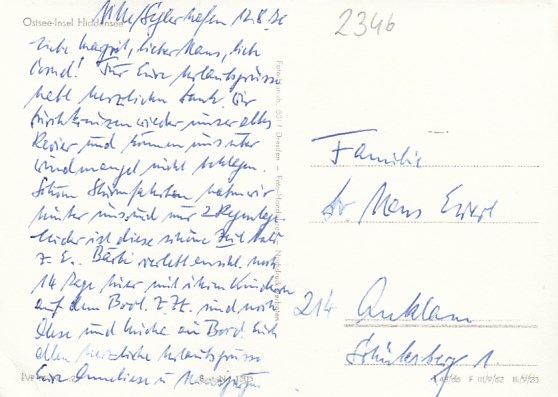 Ostsee-Insel Hiddensee
12.8.76
2346
Liebe Margrit, lieber Hans, lieb
Für Eure Urlaubsgrüsse
habt herzlichen Dank. Wir
durchkreuzen wieder unser altes
Revier und können uns über
windmangel nicht beklagen.
Schöne Sturmfahrten haben wir
hinter uns und nur 2 Regentage.
Leider ist diese schöne Zeit bald
z. E.. Bärbi verlebt anschl. noch
14 Tage hier mit ihren Kindern
auf dem Boot. Z. Zt. sind noch
und an Bord. Euch
allen herzliche Urlaubsgrüsse
Eure Anneliese u.
Familie
Dr. Hans
214 Anklam
Schülerberg 1.
48/66 F III/9/62 II/9/20